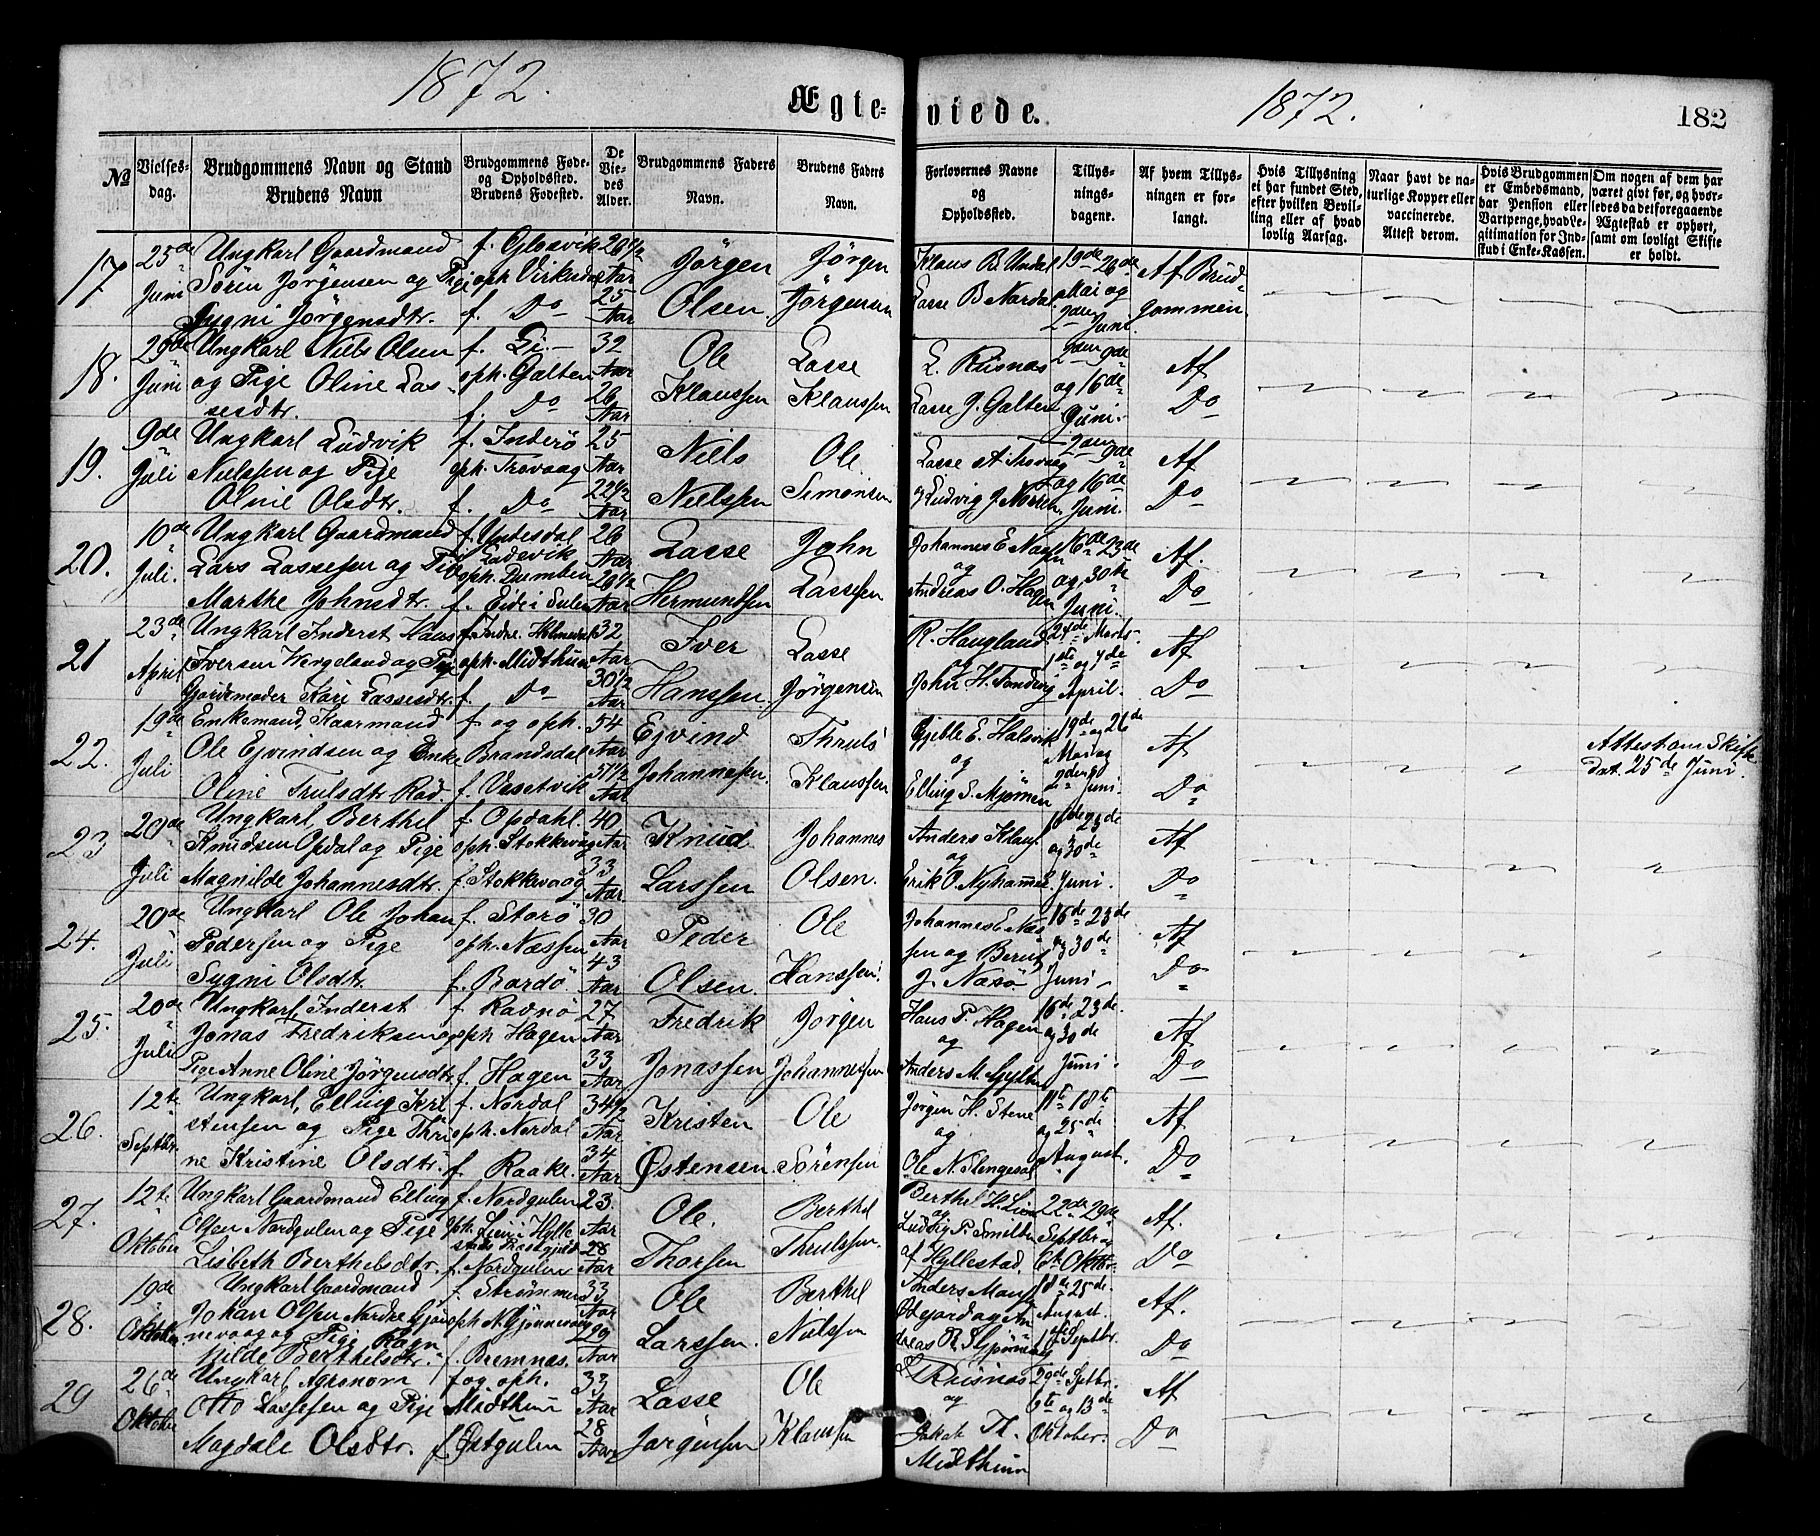 1872.
Ægte-
viede.
1872.
182
No
Vielses-
dag.
Brudgommens Navn og Stand
Brudens Navn
Brudgommens Føde-
og Opholdssted.
Brudens Fødested.
De
Vie-
des
Alder.
Brudgommens Faders
Navn.
Brudens Faders
Navn.
Forlovernes Navne
og
Opholdssted.
Tillys-
nings-
dagene.
Af hvem Tillys-
ningen er for-
langt.
Hvis Tillysning
ei har fundet Sted,
efter hvilken Bevil-
ling eller af hvad
lovlig Aarsag.
Naar havt de na-
turlige Kopper eller
vaccinerede.
Attest derom.
Hvis Brudgommen
er Embedsmand,
har Pension eller
Vartpenge, hvad Le-
gitimation for Ind-
skud i Enke-Kassen.
Om nogen af dem har
været givt før, og hvor-
ledes da det foregaaende
Ægteskab er ophørt,
samt om lovligt Skifte
er holdt.
17
25de Juni
Ungkarl Gaardmand
Sörin Jörgensen og Pige
Sygni Jörgensdtr.
f. Glosvik
oph. Viksdal
f. Do
Aar
25
Aar
Jörgen
Olsen
Jörgen
Jörgensen
Klaus B. Undal
Lasse B. Nordal
19de 26de
Mai og
2den Juni.
Af Brud-
gommen.
18.
29de Juni
Ungkarl Niels Olsen
og Pige Oline Las-
sesdtr.
f. Li
oph. Galten
f. Do
32
Aar
26
Aar
Ole
Klaussen
Lasse
Klaussen
L. Risnæs
Lasse J. Galten
2den 9de
og 16de
Juni.
Af
Do
19.
9de Juli
Ungkarl Ludvik
Nielssen og Pige
Oline Olsdtr.
f. Inderö
oph. Trovaag
f. Do
25
Aar
22 1/2
Aar
Niels
Nielssen
Ole
Simonsen
Lasse A. Trovaag
Ludvig J. Nossen.
2den 9de
og 16de
Juni.
Af
Do
20.
10de Juli.
Ungkarl Gaardmand
Lars Lassesen og Pige
Marthe Johnsdtr.
f. Yndesdal
f. Eide i Sulen
26
Aar
29 1/2
Aar
Lasse
Hermundsen
John
Lassesen
Johannes E. Næssen
og
Andreas O. Hagen
16de 23de
og 30te
Juni.
Af
Do
21
23de April
Ungkarl Inderst Hans
Iversen Vergeland og Pige
Gjordemoder Kari Lassesdtr.
f. Indre Holmedal
oph. Midthun
f. Do
32
Aar
30 1/2
Aar
Iver
Hanssen
Lasse
Jørgensen
R. Haugland
og
John H. Tandvig
24de Marts
1ste og 7de
April.
Af
Do
22.
19de Juli
Enkemand, Kaarmand
Ole Ejvindsen og Enke
Oline Trulsdtr. Rød.
f. og oph.
Brandsdal
f. Vesetvik
54
Aar
Aar
Ejvind
Johannessen.
Thruls
Klaussen
Gjeble E. Halsvik
og
Elling S. Mjømen
19de og 26de
Mai og
2den Juni.
Af
Do
Attest om Skifte
dat. 25de Juni.
23
20de Juli
Ungkarl Berthel
Knudsen Opdal og Pige
Magnilde Johannesdtr.
f. Opdahl.
oph. Stokkevaag
f. Stokkevaag
40
Aar
33
Aar
Knud
Larssen
Johannes
Olsen.
Anders Klaus
og
Erik O. Nyhammer
16de 23de
og 30de
Juni.
Af
Do
24.
20de Juli
Ungkarl Ole Johan
Pedersen og Pige
Sygni Olsdtr.
f. Storö
oph. Næssen
f. Bardö.
30
Aar
43
Aar
Peder
Olsen.
Ole
Hanssen
Johannes E. Næs-
sen og Bernt
J. Næsö
16de 23de
og 30de
Juni
Af
Do
25.
20de Juli
Ungkarl, Inderst
Jonas Fredriksen og
Pige Anne Oline Jörgensdtr.
f. Ravnö
oph. Hagen
f. Hagen
27
Aar
33
Aar
Fredrik
Jonassen
Jørgen
Johannessen
Hans P. Hagen
og
Anders M. Hylle
16de 23de
og 30de
Juni.
Af
Do
26.
12te Septbr.
Ungkarl, Elling Kri
stensen og Pige Thri
ne Kristine Olsdtr.
f. Nordal
oph. Nordal
f. Raake.
34 1/2
Aar
34
Aar
Kristen
Østensen.
Ole
Sörensen
Jørgen H. Stene
og
Ole N. Slengesol
11te 18te
og 25de
August.
Af
Do
27.
12te Oktober
Ungkarl Gaardmand Elling
Olsen Nordgulen og Pige
Lisbeth Berthelsdtr.
f. Nordgulen
oph. Lien i Hylle
stads Præstegjæld
f. Nordgulen
23.
Aar
28
Aar
Ole.
Thorsen
Berthel
Thrulssen.
Berthel H. Lien
og
Ludvig P. Smilten
af Hyllestad.
22de 29de
Septbr og
6te Oktbr.
Af.
Do
28.
19de Oktober.
Ungkarl Gaardmand
Johan Olsen Nordre Gjön
nevaag og Pige Ragn
hilde Berthelsdtr.
f. Strömmen
oph. N. Gjönnevaag
f. Bremnæs.
33
Aar
29
Aar
Ole
Larssen.
Berthel
Nielssen
18de 25de
August.
1ste Septbr.
Af.
Do
29
26de Oktober
Ungkarl Agronom
Otto Lassesen og Pige
Magdale Olsdtr.
f. og oph.
Midthun
f. Østgulen
33
Aar
28
Aar
Lasse
Jørgensen
Ole
Klaussen
L. Risnæs
og
Jakob Th.
Midthun
29de Septbr.
6te og 13de
Oktober.
Af
Do